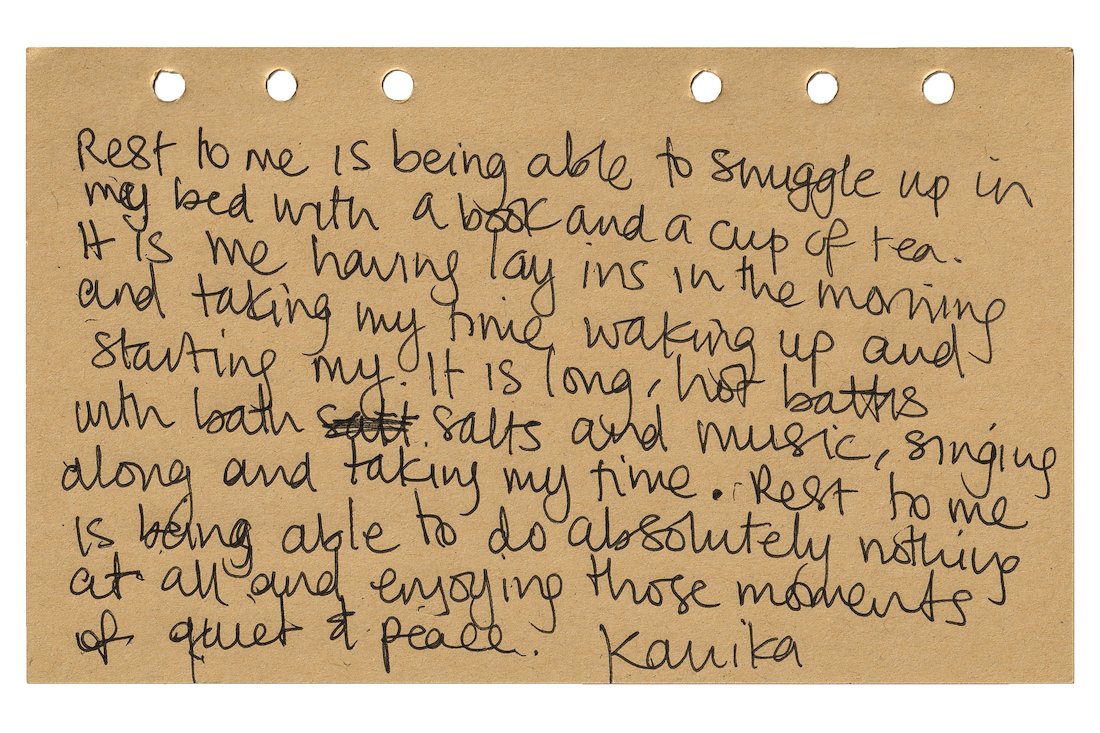 Rest to me is being able to snuggle up in
my bed with a book and a cup of tea.
It is me having lay ins in the morning
and taking my time waking up and
starting my. It is long, hot baths
with bath salts and music, singing
along and taking my time. Rest to me
is being able to do absolutely nothing
at all and enjoying those moments
of quiet & peace. Kanika